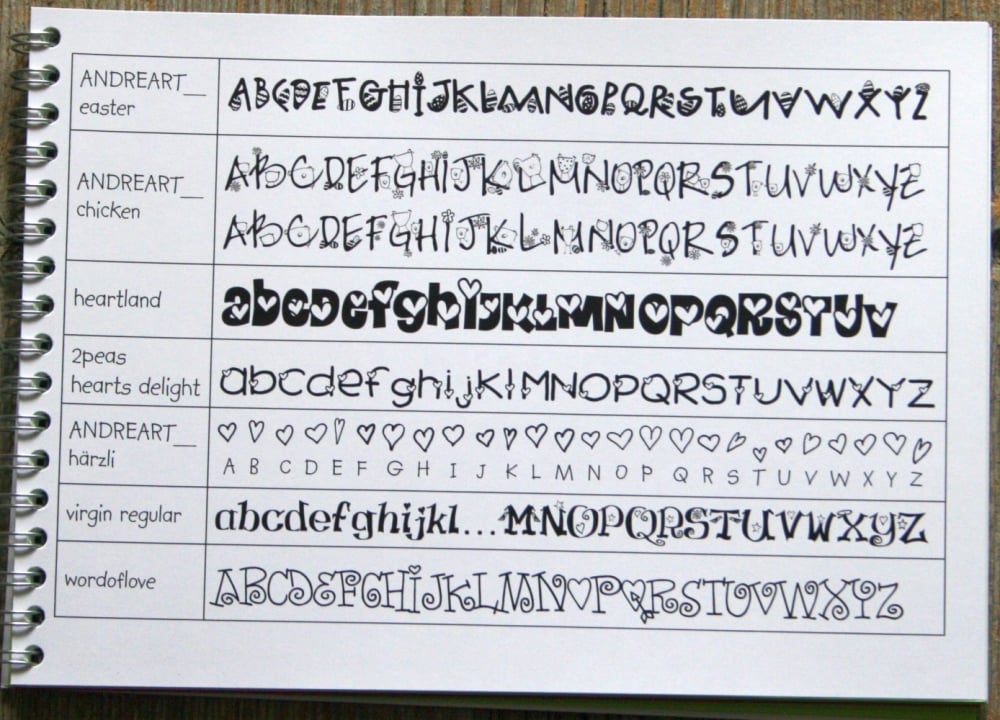 ANDREART__
easter
ABCDEFGHIJKLMNOPQRSTUVWXYZ
ANDREART__
chicken
ABCDEFGHIJKLMNOPQRSTUVWXYZ
ABCDEFGHIJKLMNOPQRSTUVWXYZ
heartland
abcDefghIJKLMNOPQRSTUV
2peas
hearts delight
abcdefghijKlMNOPQRSTUVWXYZ
ANDREART__
härzli
A B C D E F G H I J K L M N O P Q R S T U V W X Y Z
virgin regular
abcdefghijkl...MNOPQRSTUVWXYZ
wordoflove
ABCDEFGHIJKLMNOPQRSTUVWXYZ